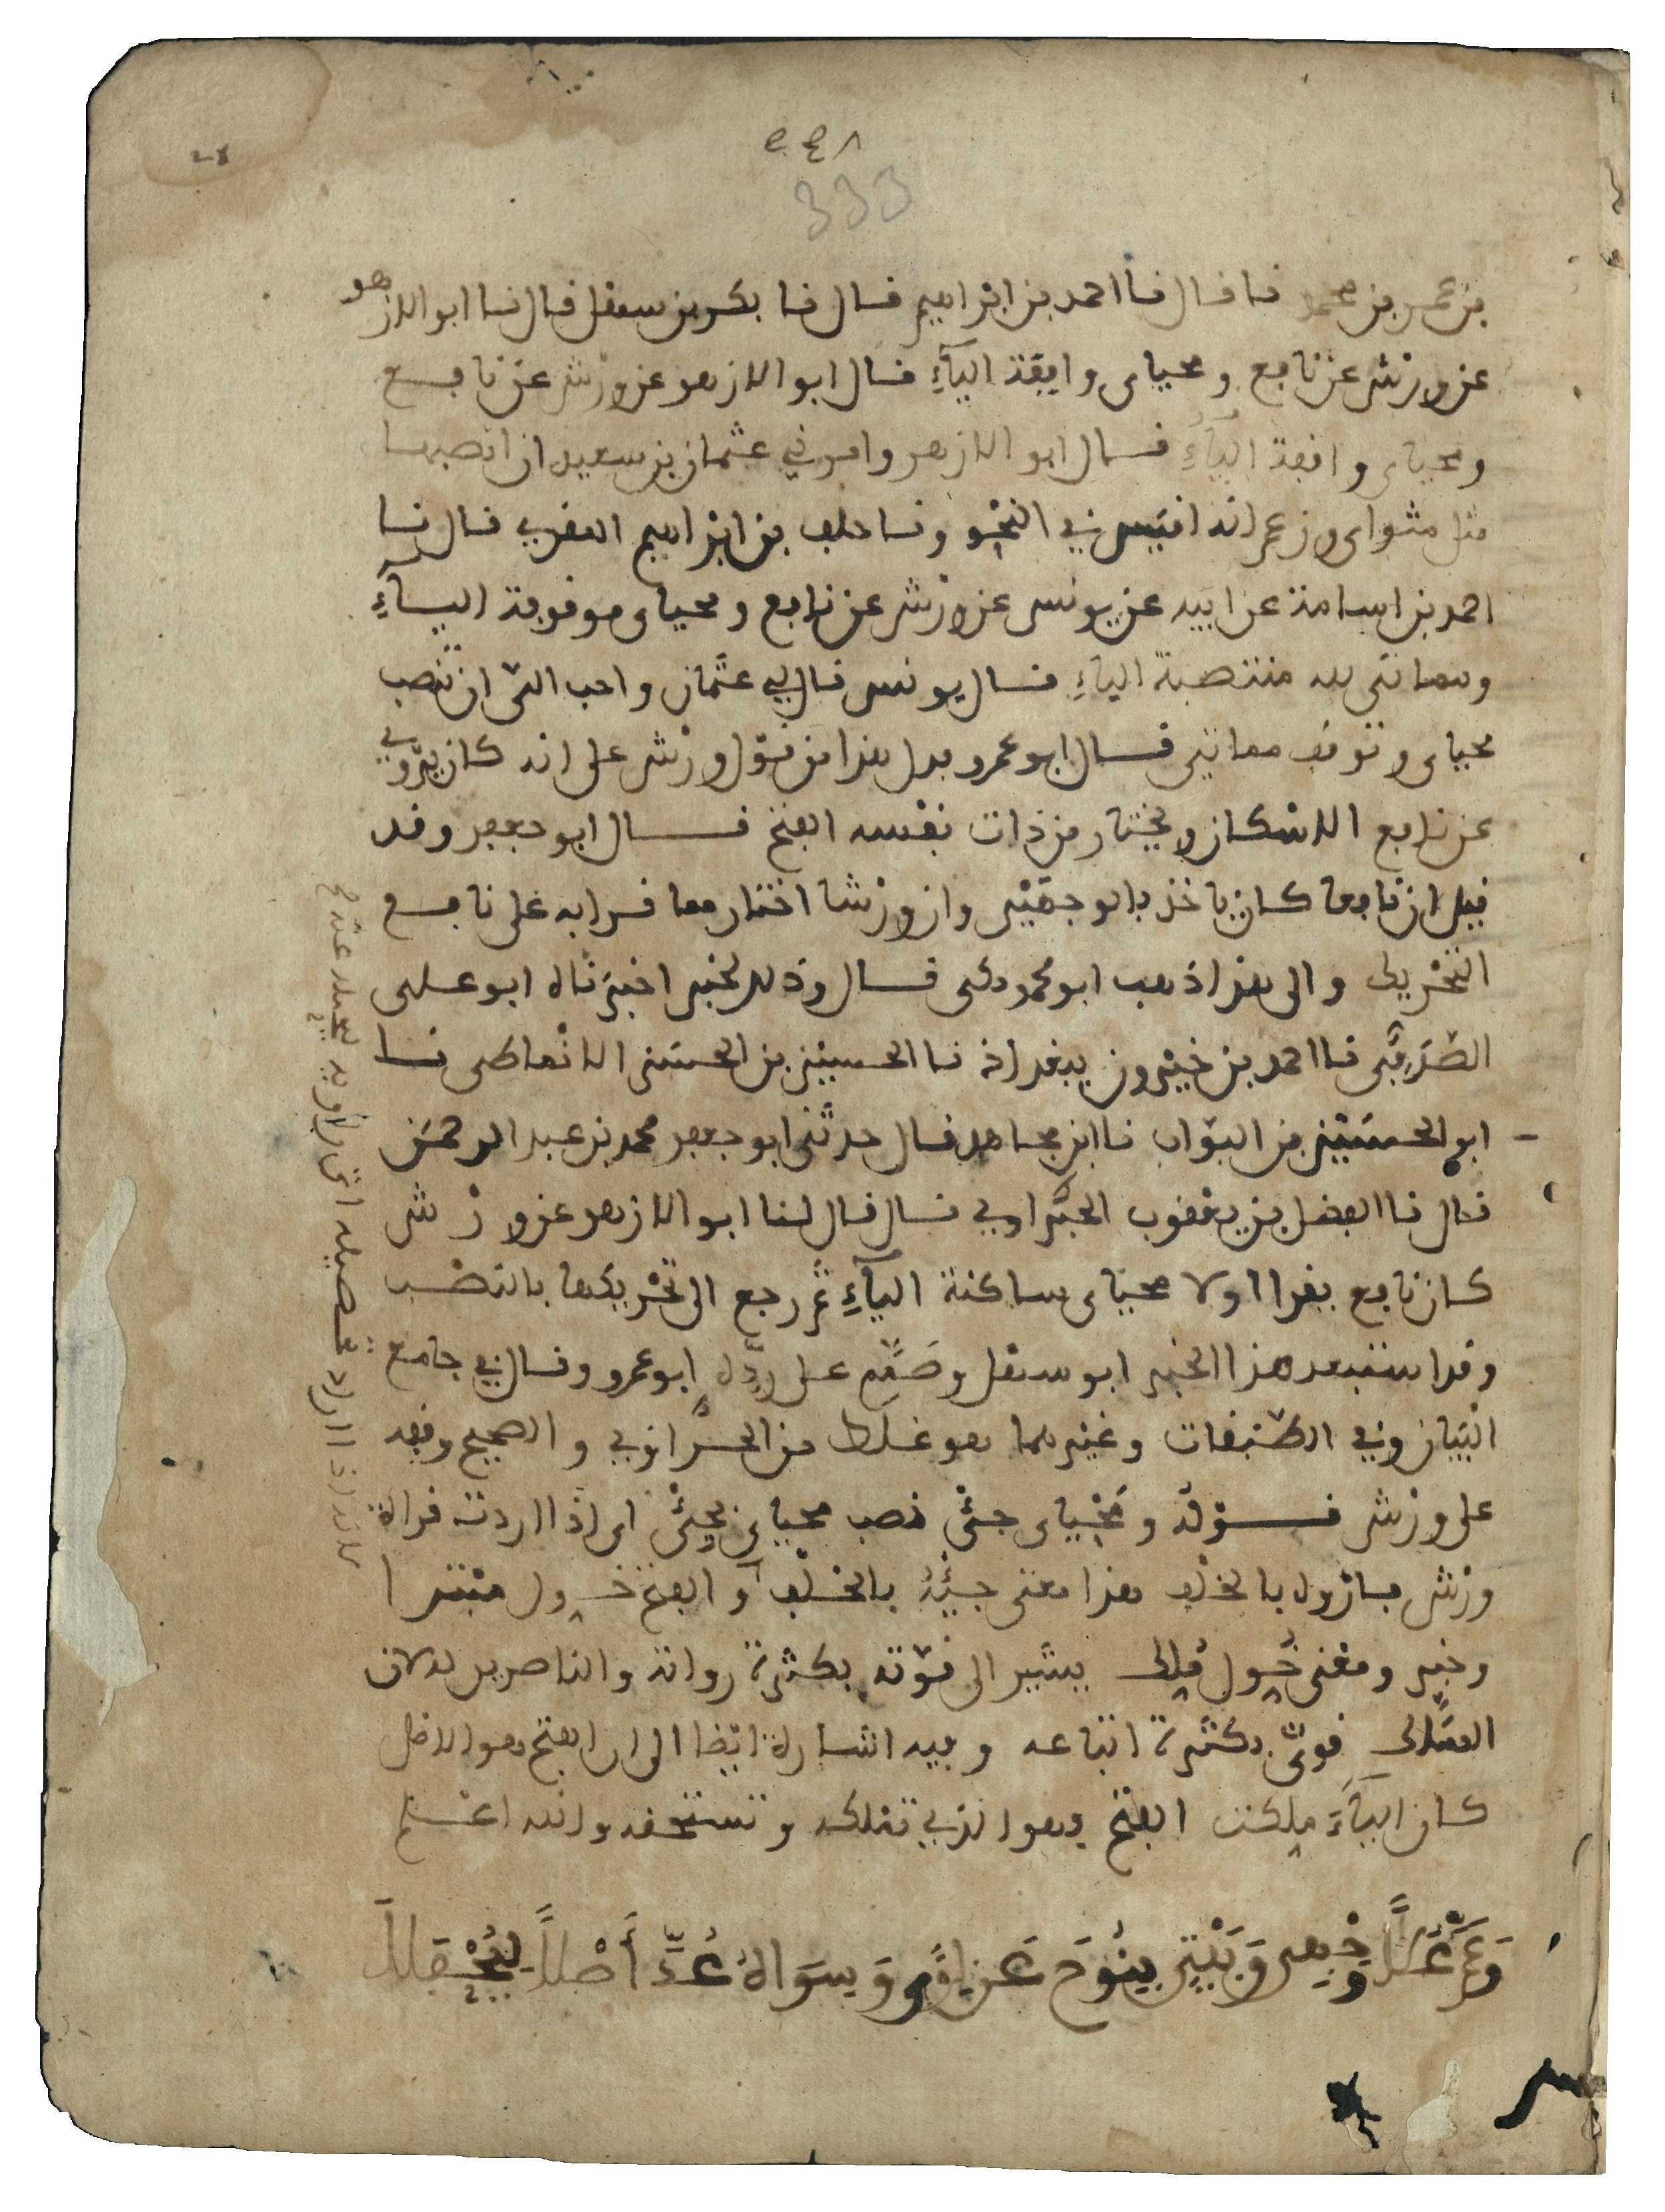 ٢٤٨
333
بن عمر بن محمد نا قال نا احمد بن ابراهيم قال نا بكر بن سهل قال نا ابو الازهر
عن ورش عن نافع ومحياى واقفة الياء قال ابو الازهر عن ورش عن نافع
ومحياى واقفة الياء قال ابو الازهر وامرني عثمان بن سعيد ان انصبها
مثل مثواى وزعم انه اقيس في النحو ونا خلف بن ابراهيم المقري قال نا
احمد بن اسامة عن ابيه عن يونس عن ورش عن نافع ومحياى موقوفة الياء
ومماتى لله منتصبة الياء قال يونس قال لي عثمان واحب الى ان تنصب
محياى وتوقف مماتي قال ابو عمرو فدل هذا من قول ورش على انه كان يروي
عن نافع الاسكان ويختار من ذات نفسه الفتح قال ابو جعفر وقد
قيل ان نافعا كان ياخذ بالوجهين وان ورشا اختار مما قرا به على نافع
التحريك والى هذا ذهب ابو محمد مكى قال وذلك لخبر اخبرناه ابو على
الصدفى نا احمد بن خيرون ببغداذ نا الحسين بن الحسن الانماطى نا
ابو الحسين بن البواب نا ابن مجاهد قال حدثنى ابو جعفر محمد بن عبد الرحمن
قال نا الفضل بن يعقوب الحمراوي قال قال لنا ابو الازهر عن ورش
كان نافع يقرا اولا محياى ساكنة الياء ثم رجع الى تحريكها بالنصب
وقد استبعد هذا الخبر ابو سهل وصمم على رده ابو عمرو وقال في جامع
البيان وفي الطبقات وغيرهما هو غلط من الحمراوي والصحيح وقفه
على ورش قوله ومحياى جئ نصب محياى بجئ اى اذا اردت قراءة
ورش فانزل بالخلف هذا معنى جئ بالخلف والفتح خول مبتدا
وخبر ومعنى خول ملك يشير الى قوته بكثرة رواته والناصرين له لان
الملك قوي بكثرة اتباعه وفيه اشارة ايضا الى ان الفتح هو الاصل
كان الياء ملكت الفتح وهو الذي تملكه وتستحقه والله اعلم
وَعَمَّ عُلًا وَجْهِى وَبَيْتِى بِنُوحَ عَنْ لِوًى وَسِوَاهُ عُدَّ أَصْلًا لِيُحْفَلَا